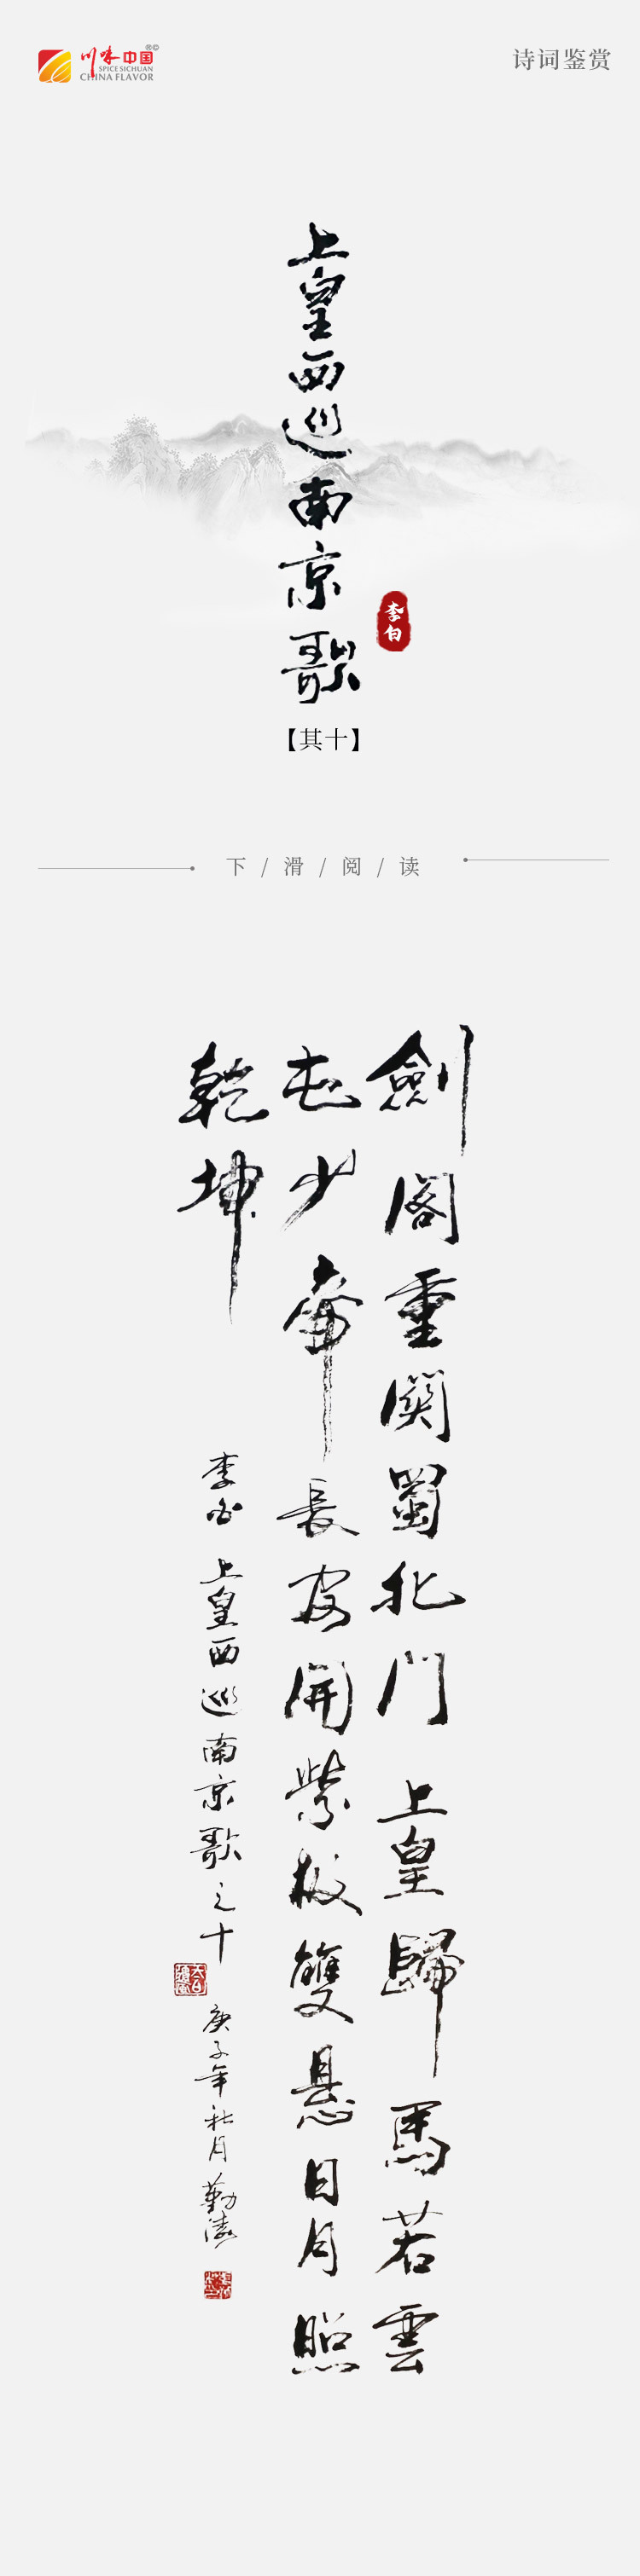 川味中国®©
SPICE SICHUAN
CHINA FLAVOR
诗词鉴赏
上皇西巡南京歌
李白
【其十】
下/滑/阅/读
劍閣重關蜀北門 上皇歸馬若雲
屯少帝長安開紫極雙懸日月照
乾坤
李白 上皇西巡南京歌之十
庚子年秋月